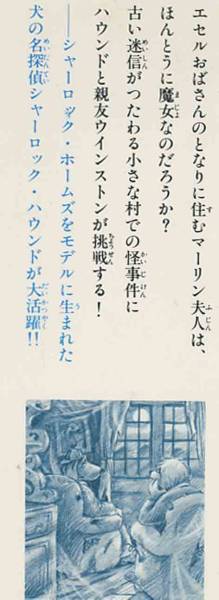 エセルおばさんのとなりに住むマーリン夫人は、
ほんとうに魔女なのだろうか？
古い迷信がつたわる小さな村での怪事件に
ハウンドと親友ウインストンが挑戦する！
──シャーロック・ホームズをモデルに生まれた
犬の名探偵シャーロック・ハウンドが大活躍!!